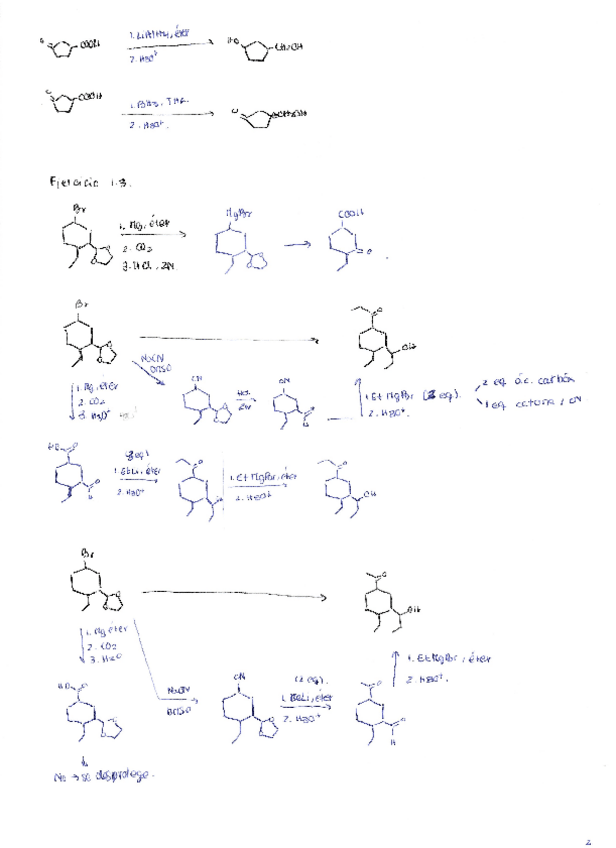 COOH
1. LiAlH4, éter
2. H3O+
HO
CH2OH
O
COOH
1. BH3, THF
2. H3O+
O
CH2OH
Ejercicio 1.3.
Br
1. Mg, éter
2. CO2
3. HCl, Zn
MgBr
COOH
Br
NaCN
DMSO
1. Mg, éter
2. CO2
3. H3O+
CN
CN
1. Et MgBr
2. H3O+
2 eq ác. carbox
1 eq cetona / CN
1. EtLi, éter
2. H3O+
1. Et MgBr, éter
2. H3O+
OH
Br
OH
1. Mg éter
2. CO2
3. H3O
NaCN
DMSO
CN
(2 eq).
2. H3O+
1. Et MgBr, éter
2. H3O+.
No → se desprotege.
2